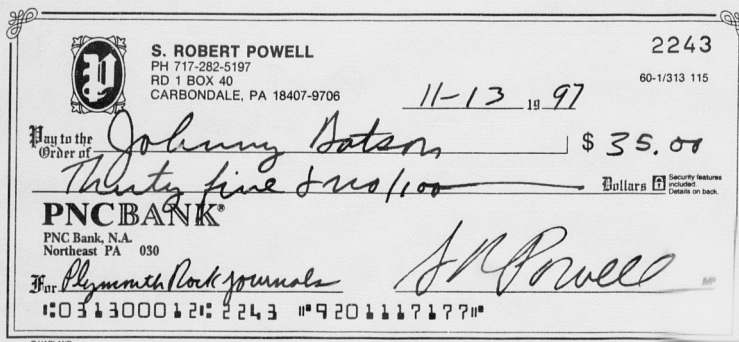 S. ROBERT POWELL
PH 717-282-5197
RD 1 BOX 40
CARBONDALE, PA 18407-9706
2243
60-1/313 115
11-13 19 97
Pay to the Order of Johnny Dotson $ 35.00
Thirty five & no/100 Dollars
Security features included. Details on back.
PNCBANK®
PNC Bank, N.A.
Northeast PA 030
For Plymouth Rock journals S R Powell
MP
⑆031300012⑆ 2243 ⑈9201117177⑈